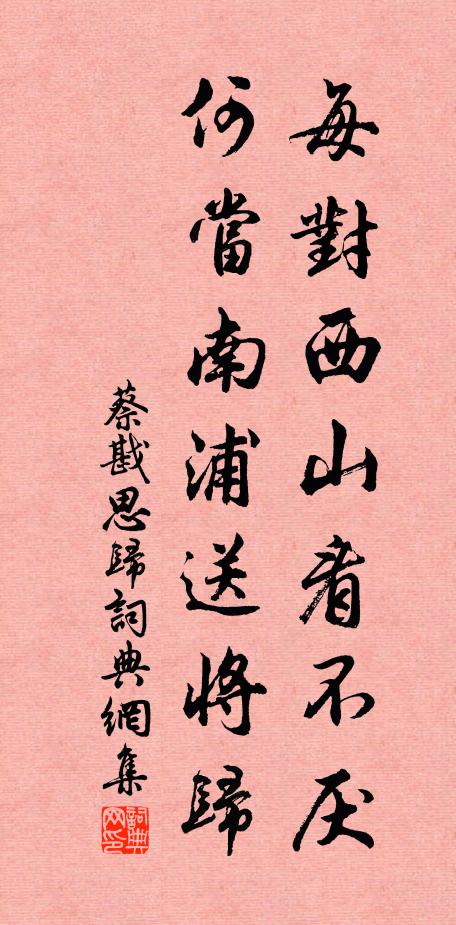 每對西山看不厌
何當南浦送將歸
蔡戡思歸詞典網集
詞典网印